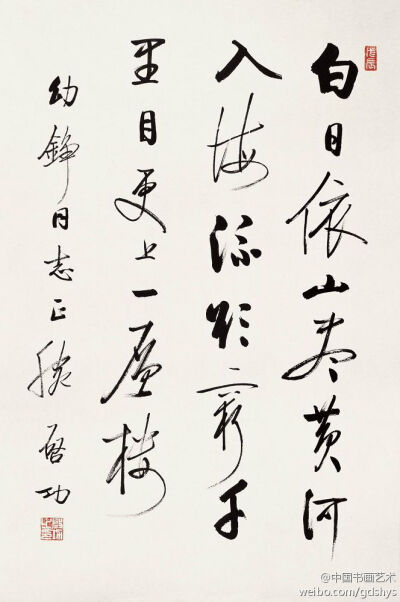 白日依山盡黃河
入海流欲窮千
里目更上一層樓
幼錚同志正腕 啓功
@中国书画艺术
weibo.com/gdshys